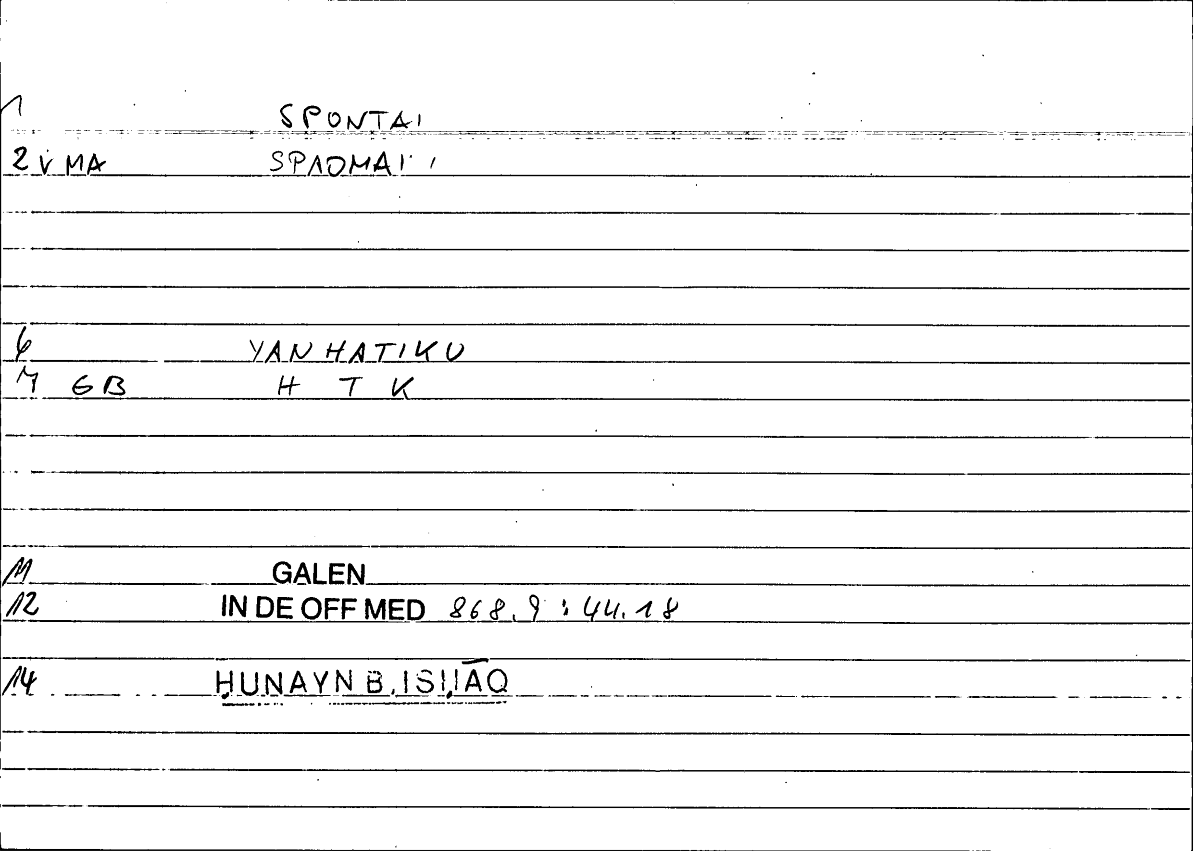 1 SPONTAI
2 V MA SPAOMAI
6 YANHATIKU
7 GB H T K
11 GALEN
12 IN DE OFF MED 868.9 : 44.18
14 ḤUNAYN B. ISḤĀQ